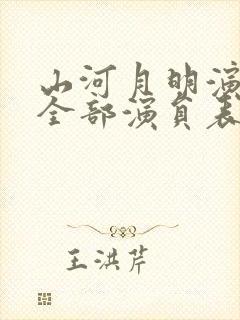 山河月明演
全部演员表
王洪芹